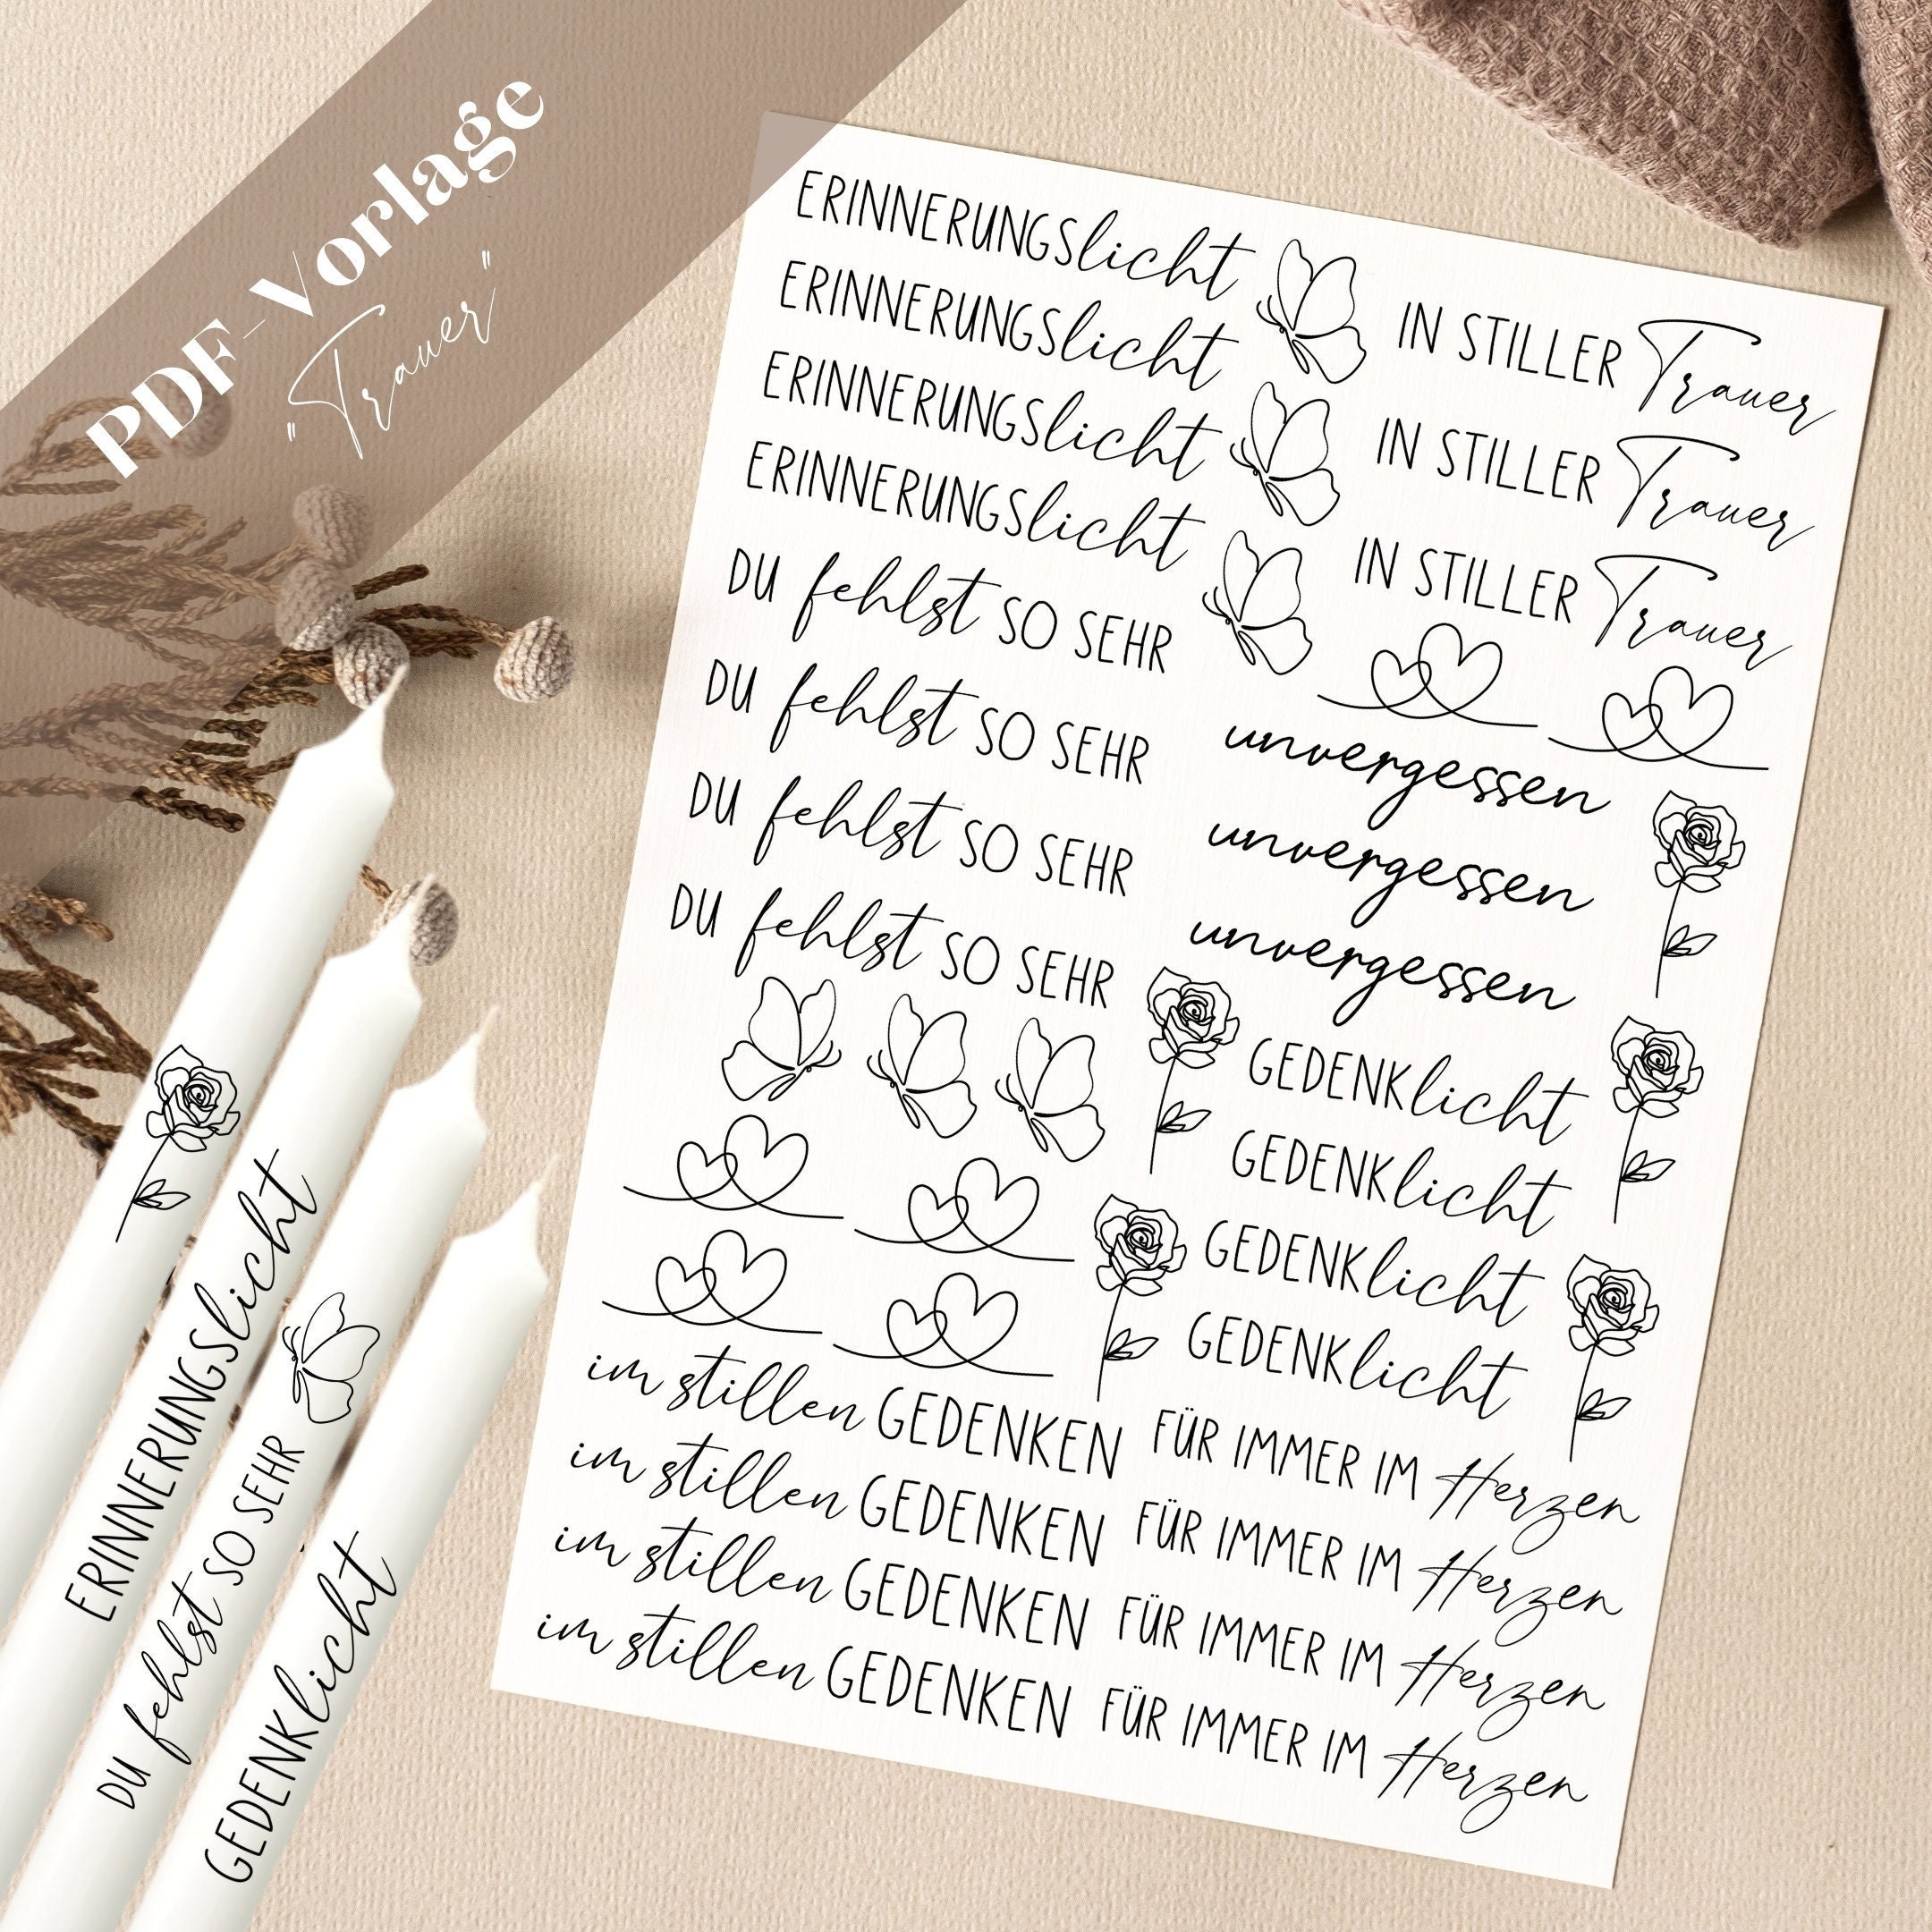 PDF-Vorlage
"Trauer"
ERINNERUNGSlicht
ERINNERUNGSlicht
ERINNERUNGSlicht
ERINNERUNGSlicht
DU fehlst SO SEHR
DU fehlst SO SEHR
DU fehlst SO SEHR
DU fehlst SO SEHR
IN STILLER Trauer
IN STILLER Trauer
IN STILLER Trauer
unvergessen
unvergessen
unvergessen
GEDENKlicht
GEDENKlicht
GEDENKlicht
GEDENKlicht
im stillen GEDENKEN
im stillen GEDENKEN
im stillen GEDENKEN
im stillen GEDENKEN
FÜR IMMER IM Herzen
FÜR IMMER IM Herzen
FÜR IMMER IM Herzen
FÜR IMMER IM Herzen
ERINNERUNGSlicht
DU fehlst SO SEHR
GEDENKlicht